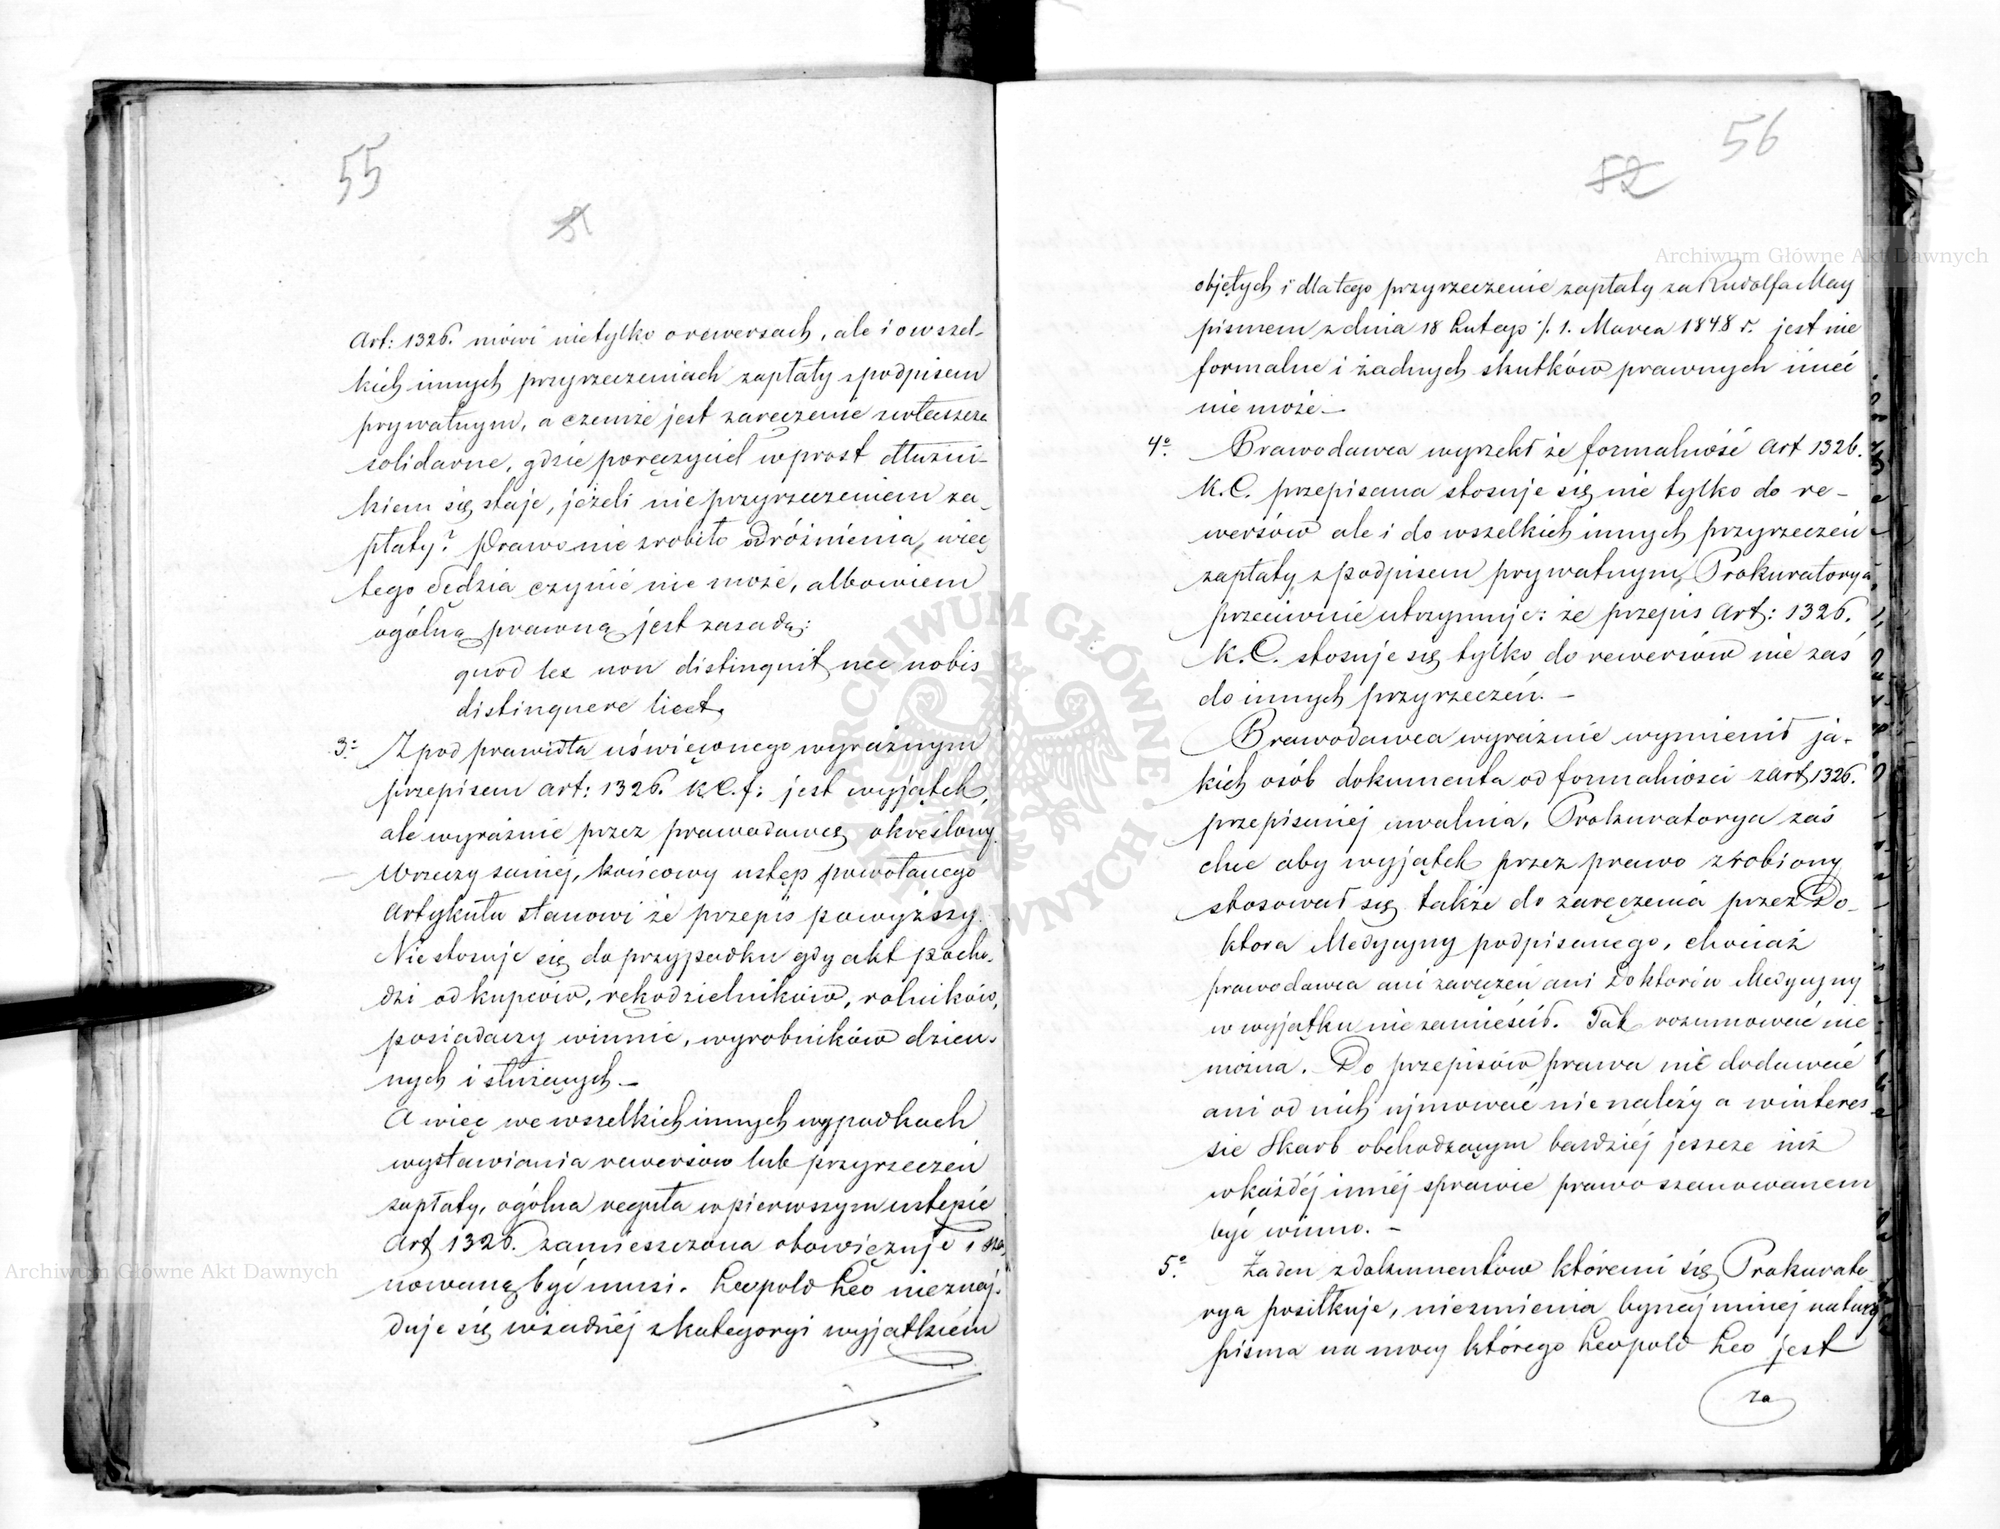 55
51
Art: 1326. mówi nietylko o rewersach, ale i o wszel-
kich innych przyrzeczeniach zapłaty z podpisem
prywatnym, a czemże jest zaręczenie zwłaszcza
solidarne, gdzie poręczyciel wprost dłużni-
kiem się staje, jeżeli nie przyrzeczeniem za-
płaty? Prawo nie zrobiło odróżnienia, więc
tego Sędzia czynić nie może, albowiem
ogólną prawną jest zasadą:
quod lex non distinguit nec nobis
distinguere licet.
3o Z pod prawidła uświęconego wyraźnym
przepisem art: 1326. K.C.f: jest wyjątek,
ale wyraźnie przez prawodawcę określony.
W rzeczy saméj, końcowy ustęp powołanego
Artykułu stanowi że przepis powyższy.
Nie stosuje się do przypadku gdy akt pocho-
dzi od kupców, rękodzielników, rolników,
posiadaczy winnic, wyrobników dzien-
nych i służących. –
A więc we wszelkich innych wypadkach
wystawiania rewersów lub przyrzeczeń
zapłaty, ogólna reguła w pierwszym ustępie
Art 1326. zamieszczona obowięzuje i sza-
nowaną być musi. Leopold Leo nieznaj-
duje się w żadnéj z kategoryi wyjątkiem
56
52
objętych i dla tego przyrzeczenie zapłaty za Rudolfa May
pismem z dnia 18 Lutego /. 1. Marca 1848 r. jest nie
formalne i żadnych skutków prawnych mieć
nie może. –
4o Prawodawca wyrzekł że formalność Art 1326.
K.C. przepisana stosuje się nie tylko do re-
wersów ale i do wszelkich innych przyrzeczeń
zapłaty z podpisem prywatnym, Prokuratorya
przeciwnie utrzymuje: że przepis Art: 1326.
K.C. stosuje się tylko do rewersów nie zaś
do innych przyrzeczeń. –
Prawodawca wyraźnie wymienił ja-
kich osób dokumenta od formalności z art 1326.
przepisanéj uwalnia, Prokuratorya zaś
chce aby wyjątek przez prawo zrobiony
stosował się także do zaręczenia przez Do-
ktora Medycyny podpisanego, chociaż
prawodawca ani zaręczeń ani Doktorów Medycyny
w wyjątku nie zamieścił. Tak rozumować nie
można. Do przepisów prawa nic dodawać
ani od nich ujmować nie należy a w interes
sie Skarb obchodzącym bardziéj jeszcze niż
w każdéj innéj sprawie prawo szanowanem
być winno. –
5o Żaden z dokumentów któremi się Prokurato-
rya posiłkuje, niezmienia bynajmniej natury
pisma na mocy którego Leopold Leo jest
za
Archiwum Główne Akt Dawnych
Archiwum Główne Akt Dawnych
ARCHIWUM GŁÓWNE AKT DAWNYCH